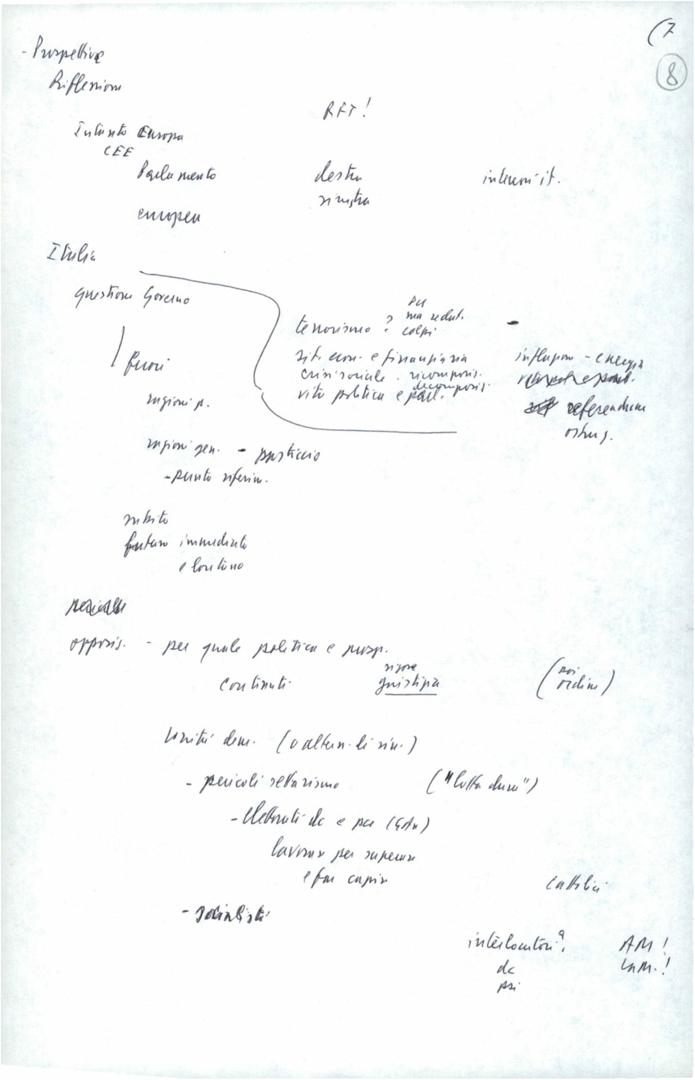 (7
8
- Prospettive
Riflessioni
RFT!
Intanto Europa
CEE
Parlamento destra
sinistra
europeo
Italia
questione Governo
terrorismo ? colpi
fuori
sit. econ. e finanziaria
crisi sociale . ricomposiz.
decomposiz.
vita politica e parl.
inflazione - energia
referendum
ragioni p.
ragioni gen. - pasticcio
- punto riferim.
subito
futuro immediato
e lontano
opposiz. - per quale politica e prosp.
contenuti rigore
giustizia
(noi
ordine)
Unità dem. (o altern. di sin.)
- pericoli settarismo ("lotta dura")
- elettorati dc e pci
lavorare per superare
e far capire
cattolici
- socialisti
interlocutori? AM!
dc
psi